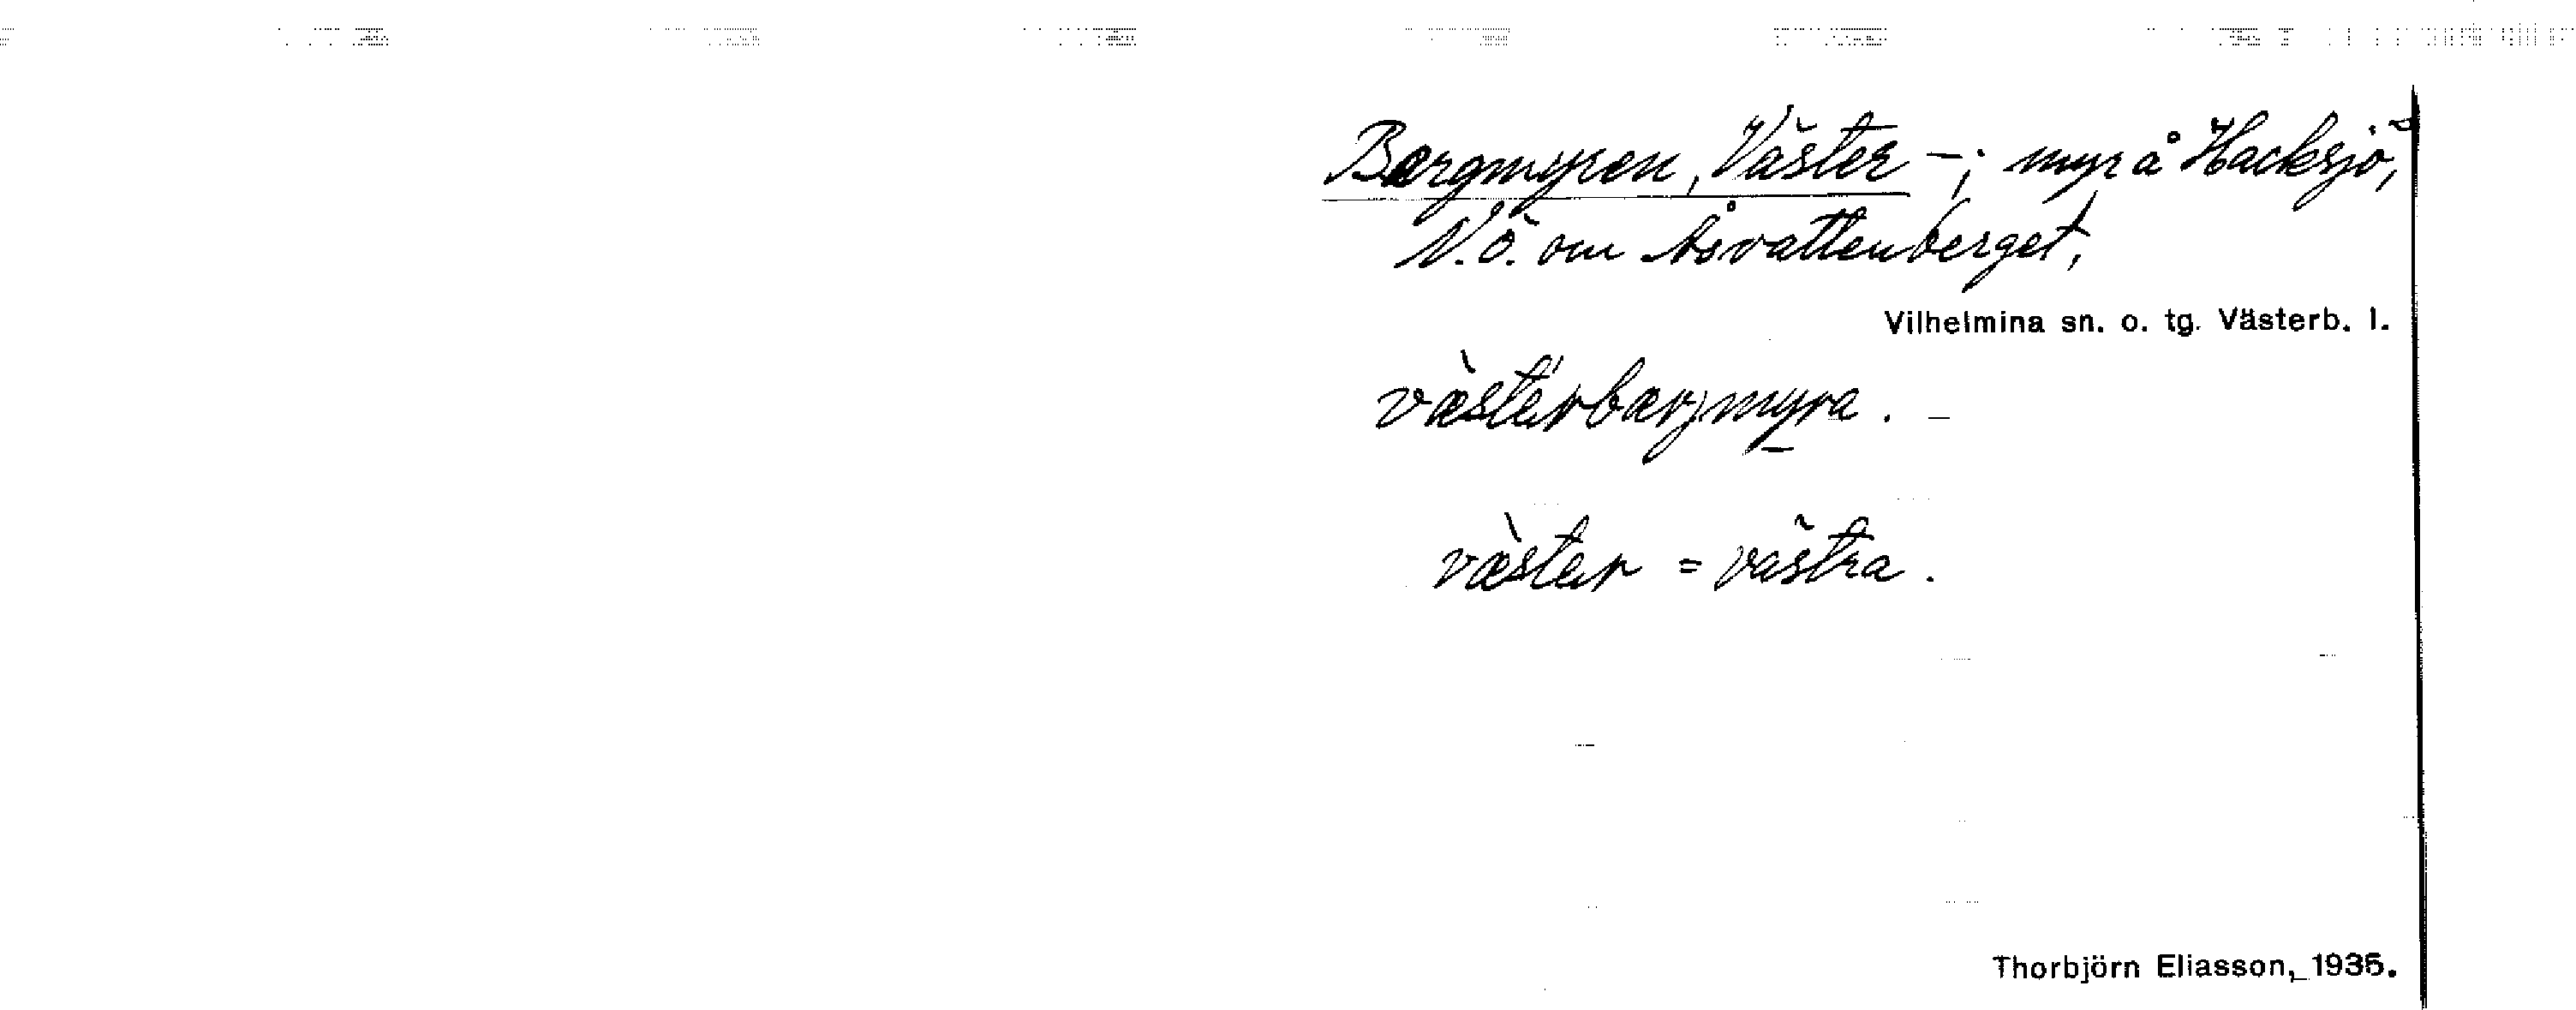 Bergmyren, Väster -; myr å Hacksjö,
N.Ö. om Åsvattenberget,
Vilhelmina sn. o. tg. Västerb. l.
væ̀stärbærjmyra. –
væ̀stär = västra.
Thorbjörn Eliasson, 1935.